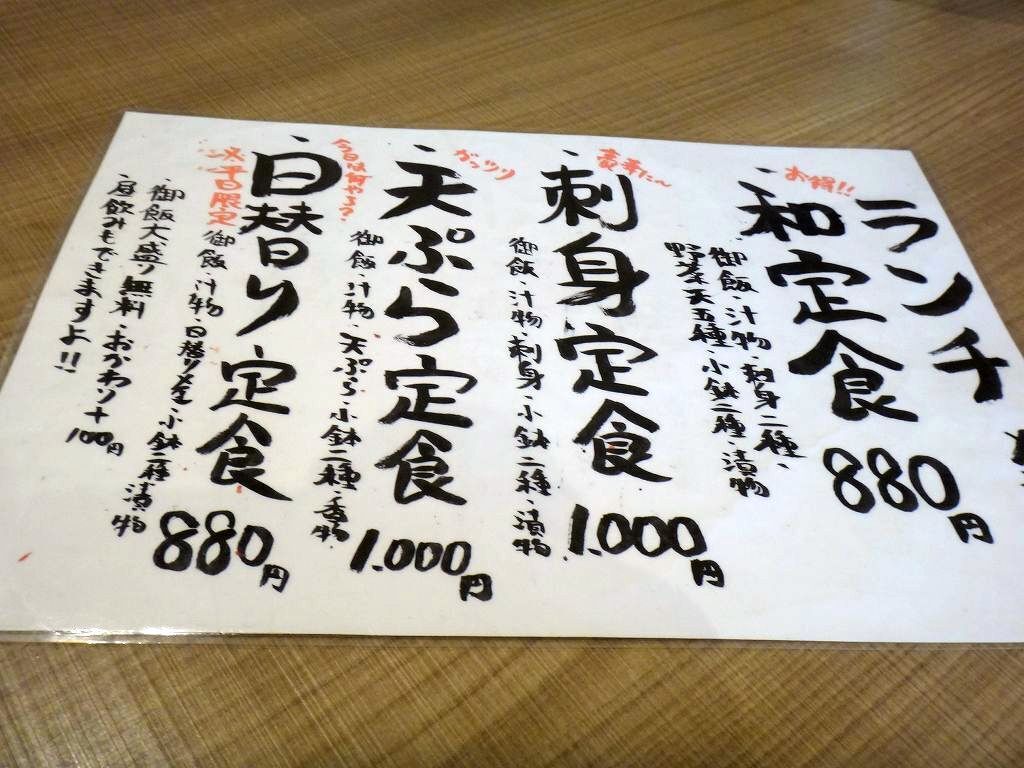 ランチ
お得!!
・和定食 880円
・御飯・汁物・刺身二種・
野菜天五種・小鉢二種・漬物
・刺身定食 1.000円
御飯・汁物・刺身・小鉢二種・漬物
がっつり
・天ぷら定食 1.000円
御飯・汁物・天ぷら・小鉢二種・香物
今日は何やろ?
・日替り定食 880円
平日限定
御飯・汁物・日替りメイン・小鉢二種・漬物
・御飯大盛り無料・おかわり+100円
・昼飲みもできますよ!!